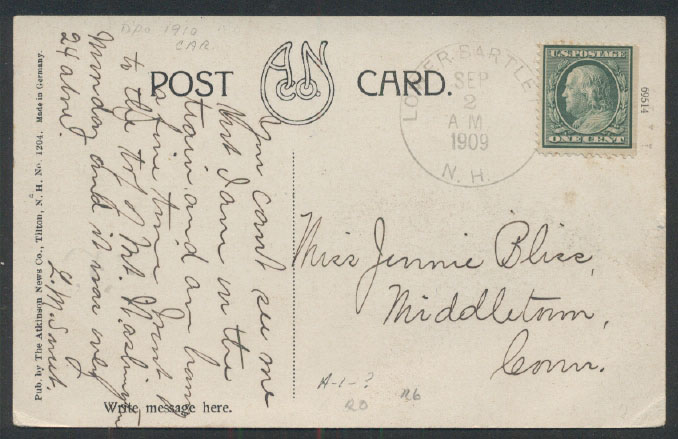 DPO 1910
CAR
POST CARD.
AN
CO.
LOWER BARTLE
SEP
2
A M
1909
N. H.
U.S. POSTAGE
ONE CENT
69514
Pub. by The Atkinson News Co., Tilton, N. H. No. 1204. Made in Germany.
You can't see me
but I am in the
train and am having
a fine time. Went
to the top of Mt. Washington
Monday and it was only
24 above.
Miss Jennie Bliss,
Middletown,
Conn.
A-1-?
R6
Write message here.